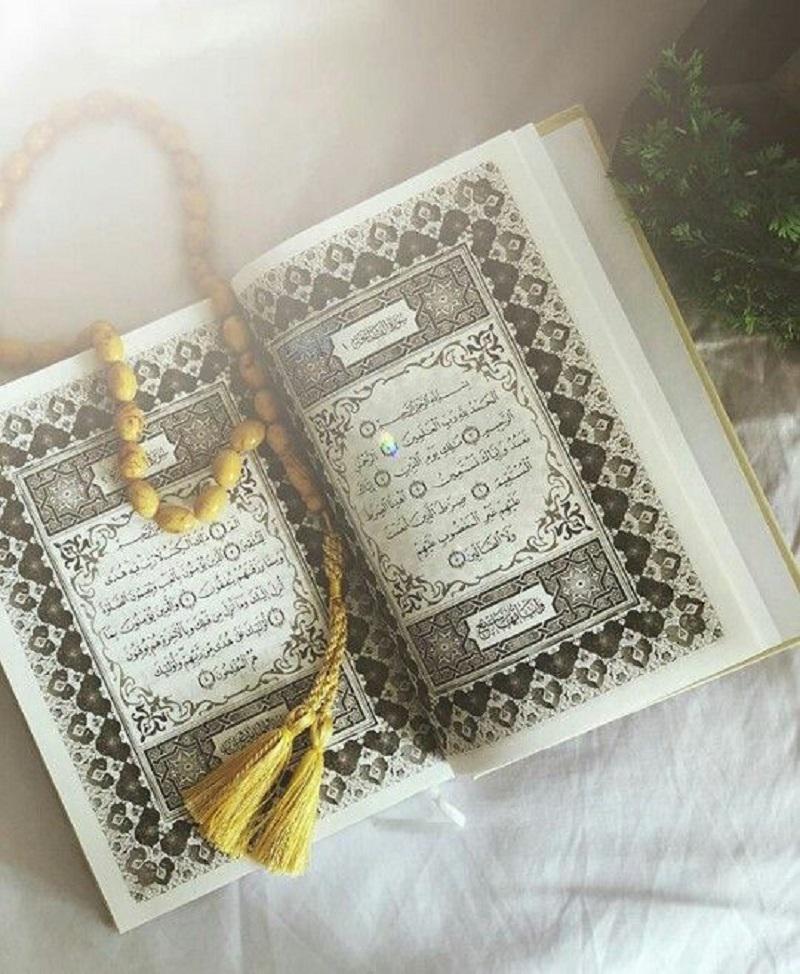 سُورَةُ الفَاتِحَةِ
بِسْمِ اللَّهِ الرَّحْمَٰنِ الرَّحِيمِ
الْحَمْدُ لِلَّهِ رَبِّ الْعَالَمِينَ الرَّحْمَٰنِ
الرَّحِيمِ مَالِكِ يَوْمِ الدِّينِ إِيَّاكَ
نَعْبُدُ وَإِيَّاكَ نَسْتَعِينُ اهْدِنَا الصِّرَاطَ
الْمُسْتَقِيمَ صِرَاطَ الَّذِينَ أَنْعَمْتَ
عَلَيْهِمْ غَيْرِ الْمَغْضُوبِ عَلَيْهِمْ
وَلَا الضَّالِّينَ
الم ذَٰلِكَ الْكِتَابُ لَا رَيْبَ فِيهِ هُدًى
لِلْمُتَّقِينَ الَّذِينَ يُؤْمِنُونَ بِالْغَيْبِ وَيُقِيمُونَ الصَّلَاةَ
وَمِمَّا رَزَقْنَاهُمْ يُنْفِقُونَ وَالَّذِينَ يُؤْمِنُونَ بِمَا
أُنْزِلَ إِلَيْكَ وَمَا أُنْزِلَ مِنْ قَبْلِكَ وَبِالْآخِرَةِ هُمْ يُوقِنُونَ
أُولَٰئِكَ عَلَىٰ هُدًى مِنْ رَبِّهِمْ وَأُولَٰئِكَ
هُمُ الْمُفْلِحُونَ